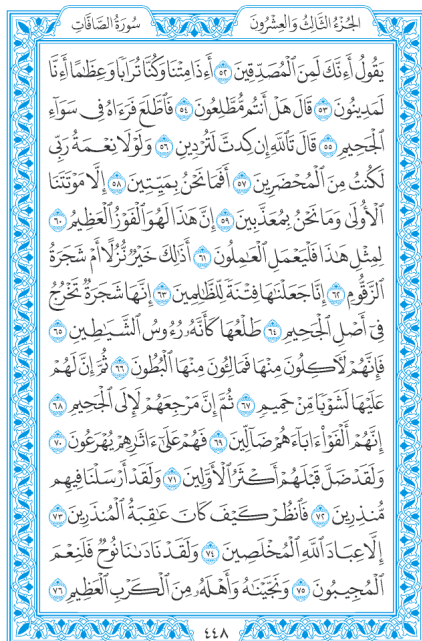 الجُزءُ الثَّالِثُ وَالعِشْرُونَ سُورَةُ الصَّافَّاتِ
يَقُولُ أَءِنَّكَ لَمِنَ ٱلْمُصَدِّقِينَ ٥٢ أَءِذَا مِتْنَا وَكُنَّا تُرَابًا وَعِظَٰمًا أَءِنَّا
لَمَدِينُونَ ٥٣ قَالَ هَلْ أَنتُم مُّطَّلِعُونَ ٥٤ فَٱطَّلَعَ فَرَءَاهُ فِى سَوَآءِ
ٱلْجَحِيمِ ٥٥ قَالَ تَٱللَّهِ إِن كِدتَّ لَتُرْدِينِ ٥٦ وَلَوْلَا نِعْمَةُ رَبِّى
لَكُنتُ مِنَ ٱلْمُحْضَرِينَ ٥٧ أَفَمَا نَحْنُ بِمَيِّتِينَ ٥٨ إِلَّا مَوْتَتَنَا
ٱلْأُولَىٰ وَمَا نَحْنُ بِمُعَذَّبِينَ ٥٩ إِنَّ هَٰذَا لَهُوَ ٱلْفَوْزُ ٱلْعَظِيمُ ٦٠
لِمِثْلِ هَٰذَا فَلْيَعْمَلِ ٱلْعَٰمِلُونَ ٦١ أَذَٰلِكَ خَيْرٌ نُّزُلًا أَمْ شَجَرَةُ
ٱلزَّقُّومِ ٦٢ إِنَّا جَعَلْنَٰهَا فِتْنَةً لِّلظَّٰلِمِينَ ٦٣ إِنَّهَا شَجَرَةٌ تَخْرُجُ
فِىٓ أَصْلِ ٱلْجَحِيمِ ٦٤ طَلْعُهَا كَأَنَّهُۥ رُءُوسُ ٱلشَّيَٰطِينِ ٦٥
فَإِنَّهُمْ لَءَاكِلُونَ مِنْهَا فَمَالِـُٔونَ مِنْهَا ٱلْبُطُونَ ٦٦ ثُمَّ إِنَّ لَهُمْ
عَلَيْهَا لَشَوْبًا مِّنْ حَمِيمٍ ٦٧ ثُمَّ إِنَّ مَرْجِعَهُمْ لَإِلَى ٱلْجَحِيمِ ٦٨
إِنَّهُمْ أَلْفَوْا۟ ءَابَآءَهُمْ ضَآلِّينَ ٦٩ فَهُمْ عَلَىٰٓ ءَاثَٰرِهِمْ يُهْرَعُونَ ٧٠
وَلَقَدْ ضَلَّ قَبْلَهُمْ أَكْثَرُ ٱلْأَوَّلِينَ ٧١ وَلَقَدْ أَرْسَلْنَا فِيهِم
مُّنذِرِينَ ٧٢ فَٱنظُرْ كَيْفَ كَانَ عَٰقِبَةُ ٱلْمُنذَرِينَ ٧٣
إِلَّا عِبَادَ ٱللَّهِ ٱلْمُخْلَصِينَ ٧٤ وَلَقَدْ نَادَىٰنَا نُوحٌ فَلَنِعْمَ
ٱلْمُجِيبُونَ ٧٥ وَنَجَّيْنَٰهُ وَأَهْلَهُۥ مِنَ ٱلْكَرْبِ ٱلْعَظِيمِ ٧٦
٤٤٨